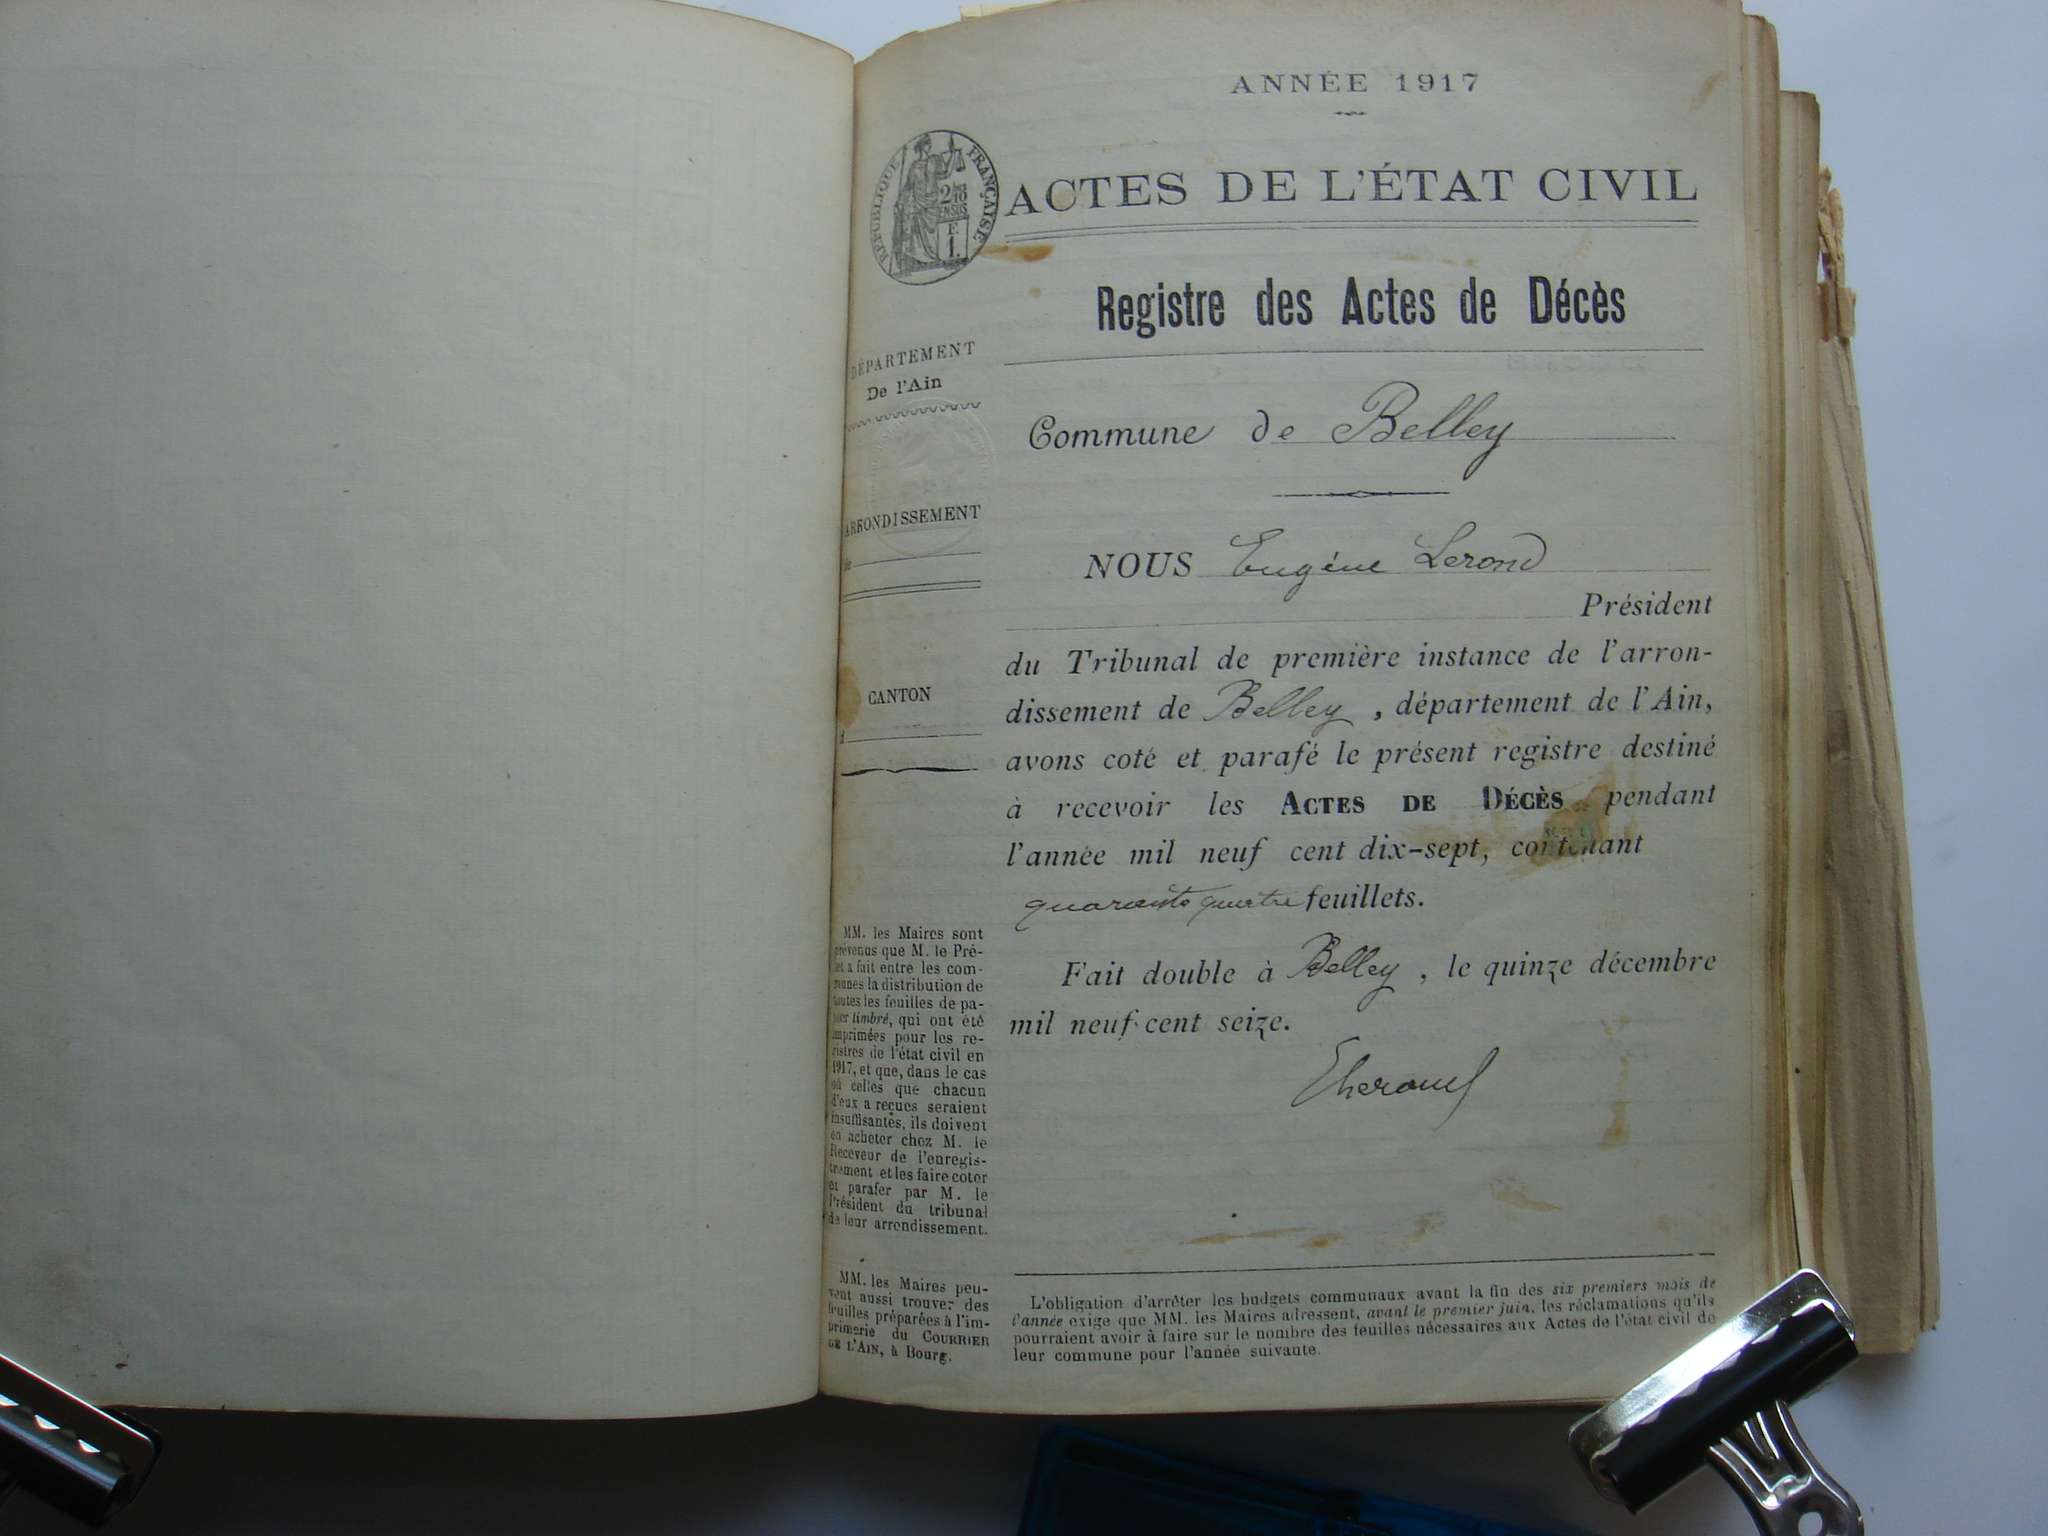 ANNÉE 1917
RÉPUBLIQUE FRANÇAISE
2/10
EN SUS
F.
1.
ACTES DE L'ÉTAT CIVIL
Registre des Actes de Décès
DÉPARTEMENT
De l'Ain
ARRONDISSEMENT
de
CANTON
d
MM. les Maires sont
prévenus que M. le Pré-
fet a fait entre les com-
munes la distribution de
toutes les feuilles de pa-
pier timbré, qui ont été
imprimées pour les re-
gistres de l'état civil en
1917, et que, dans le cas
où celles que chacun
d'eux a reçues seraient
insuffisantes, ils doivent
en acheter chez M. le
Receveur de l'enregis-
trement et les faire coter
et parafer par M. le
Président du tribunal
de leur arrondissement.
MM. les Maires peu-
vent aussi trouver des
feuilles préparées à l'im-
primerie du COURRIER
DE L'AIN, à Bourg.
Commune de Belley
NOUS Eugène Lerond
Président
du Tribunal de première instance de l'arron-
dissement de Belley, département de l'Ain,
avons coté et parafé le présent registre destiné
à recevoir les ACTES DE DÉCÈS pendant
l'année mil neuf cent dix-sept, contenant
quarante quatre feuillets.
Fait double à Belley, le quinze décembre
mil neuf cent seize.
L'obligation d'arrêter les budgets communaux avant la fin des six premiers mois de
l'année exige que MM. les Maires adressent, avant le premier juin, les réclamations qu'ils
pourraient avoir à faire sur le nombre des feuilles nécessaires aux Actes de l'état civil de
leur commune pour l'année suivante.